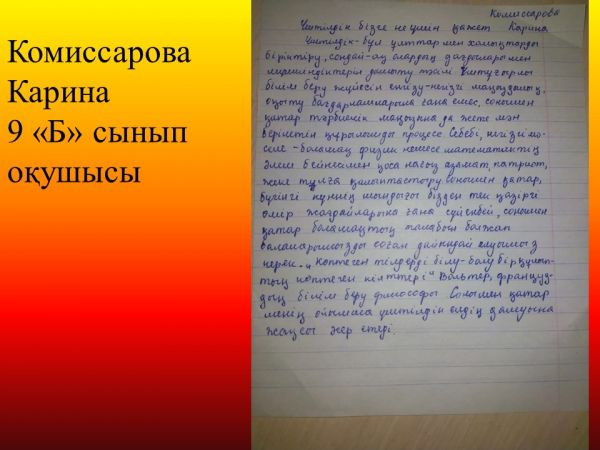 Комиссарова
Карина
9 «Б» сынып
оқушысы
Комиссарова
Үштілдік бізге не үшін қажет Карина
Үштілдік-бұл ұлттар мен халықтарды
біріктіру, сондай-ақ олардың дағдылары мен
дамыту тәсілі Үштұғырлы
білім беру жүйесін енгізу-негізгі маңыздылық,
оқыту бағдарламаларына ғана емес, сонымен
қатар тәрбиелік маңызына да және мән
беретін құрылымды процесс Себебі, негізгі мә-
селе - болашақ физик немесе математиктің
әлем бейнесімен қоса нағыз азамат, патриот,
және тұлға қалыптастыру сонымен қатар,
бүгінгі күннің шындығы бізден тек қазіргі
өмір жағдайларына ғана сүйенбей, сонымен
қатар болашақтың талабын болжап
балаларымызды соған дайындай алуымыз
керек. „Көптеген тілдерді білу-болу бір құлып-
тың көптеген кілттері" Вольтер, француз-
дың білім беру философы Сонымен қатар
менің ойымша үштілдік елдің дамуына
жақсы әсер етеді.